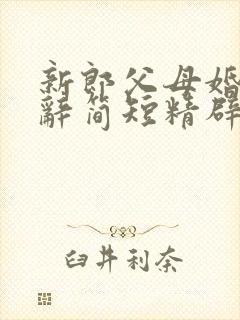 新郎父母婚
辞简短精辟
臼井利奈